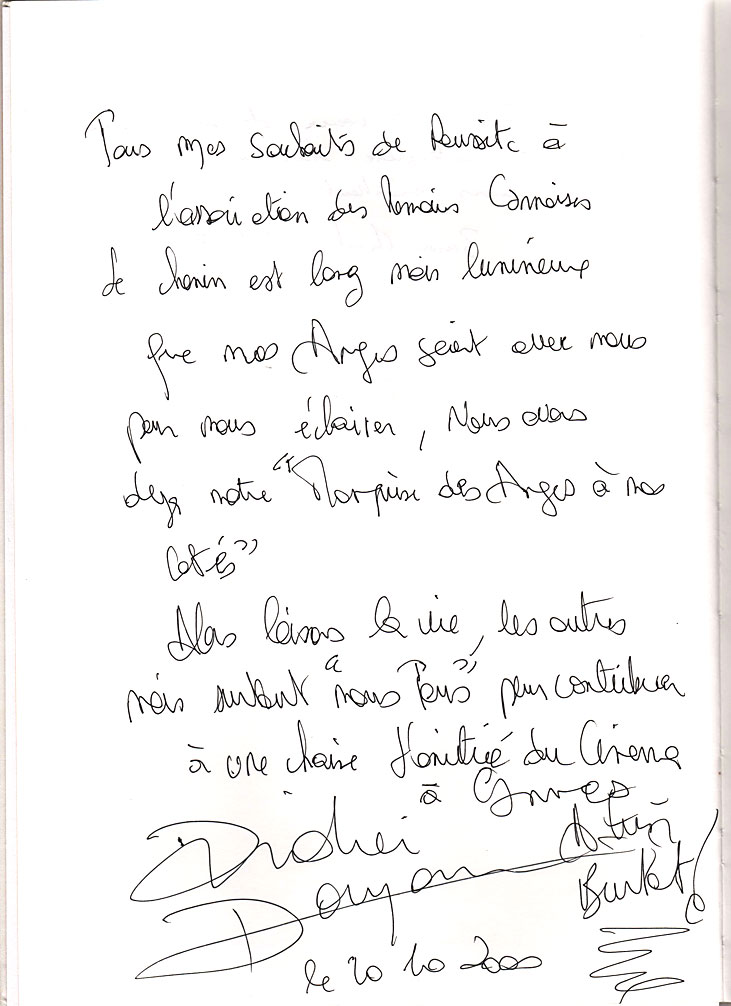 Tous mes souhaits de Réussite à
l'association des Romains Cannoises
Le chemin est long mais lumineux
que nos Anges soient avec nous
pour nous éclairer, Nous avons
deja notre "Marquise des Anges à nos
cotés"
Alors laissons la vie, les autres
mais surtout "nous Tous" pour contribuer
à une chaine d'amitié du Cinema
à Cannes
Didier
Doyon
le 20 10 2000